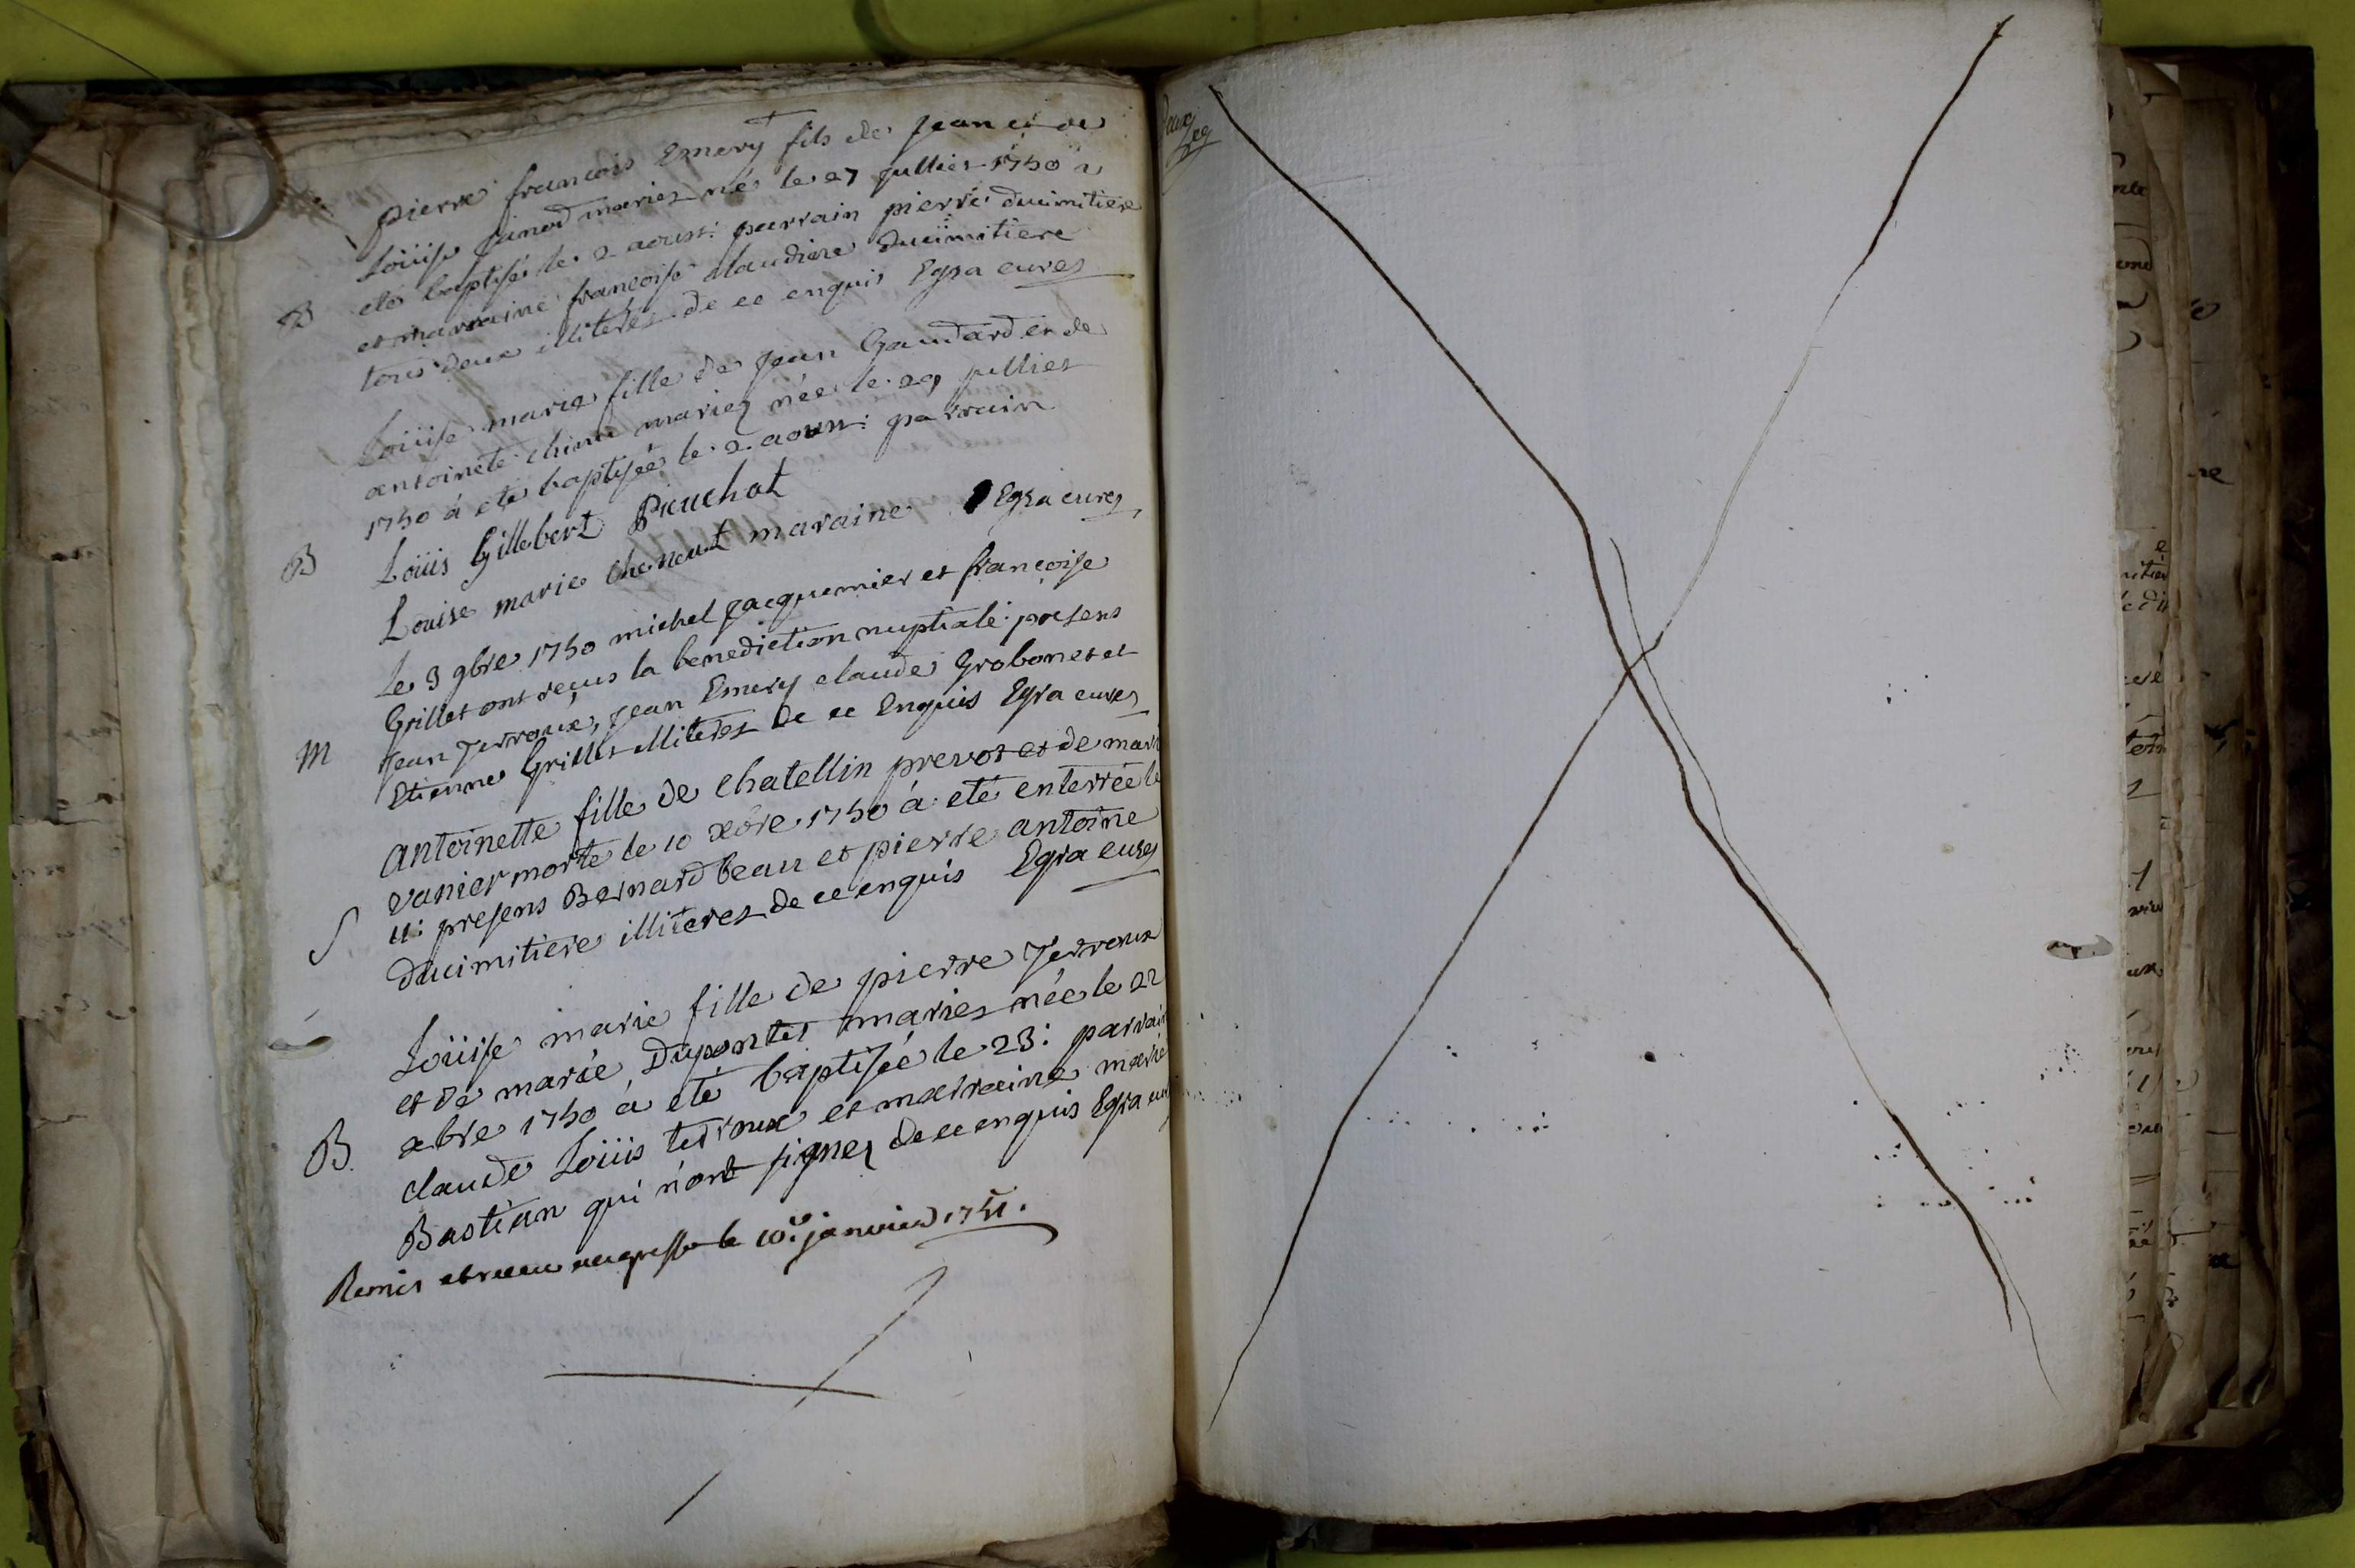 pierre françois Emery fils de Jean et de
Loüise Janod maries né le 27 jullier 1750 a
B
eté baptisé le 2 aoust: parrain pierre ducimitiere
et marraine françoise claudine ducimitiere
tous deux illiteres de ce enquis Egra curez
Loüise marie fille de Jean Gaudard et de
antoinete mariez née le 29 jullier
1750 à eté baptisée le 2 aoust: parrain
B
Loüis Gillebert Pieuchot
Louise marie Cheneut maraine Egra curez
Le 3 9bre 1750 michel Jacquemier et françoise
Grillet ont reçus la benediction nuptiale: presens
M
Jean Terroux, Jean Emery claude Grobonet et
Etienne Grillet illiteres de ce Enquis Egra curez
Antoinette fille de Chatellin prevot et de mari
vanier morte le 10 xbre 1750 à eté enterrée le
S
11: presens Bernard beau et pierre antoine
ducimitiere illiteres de ce enquis Egra curez
Loüise marie fille de pierre Terroux
et de marie Dupontet maries née le 22
B.
xbre 1750 a eté baptisée le 23: parrain
claude Loüis terroux et marraine marie
Bastian qui n'ont signez de ce enquis Egra cur
Remis et receu au greffe le 10e. janvier 1751.